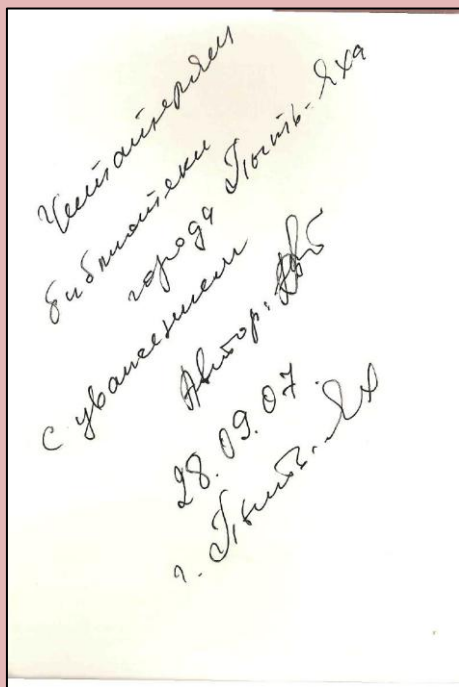 Читателям
библиотеки
города Пыть-Яха
с уважением
Автор:
28.09.07.
г. Пыть-Ях